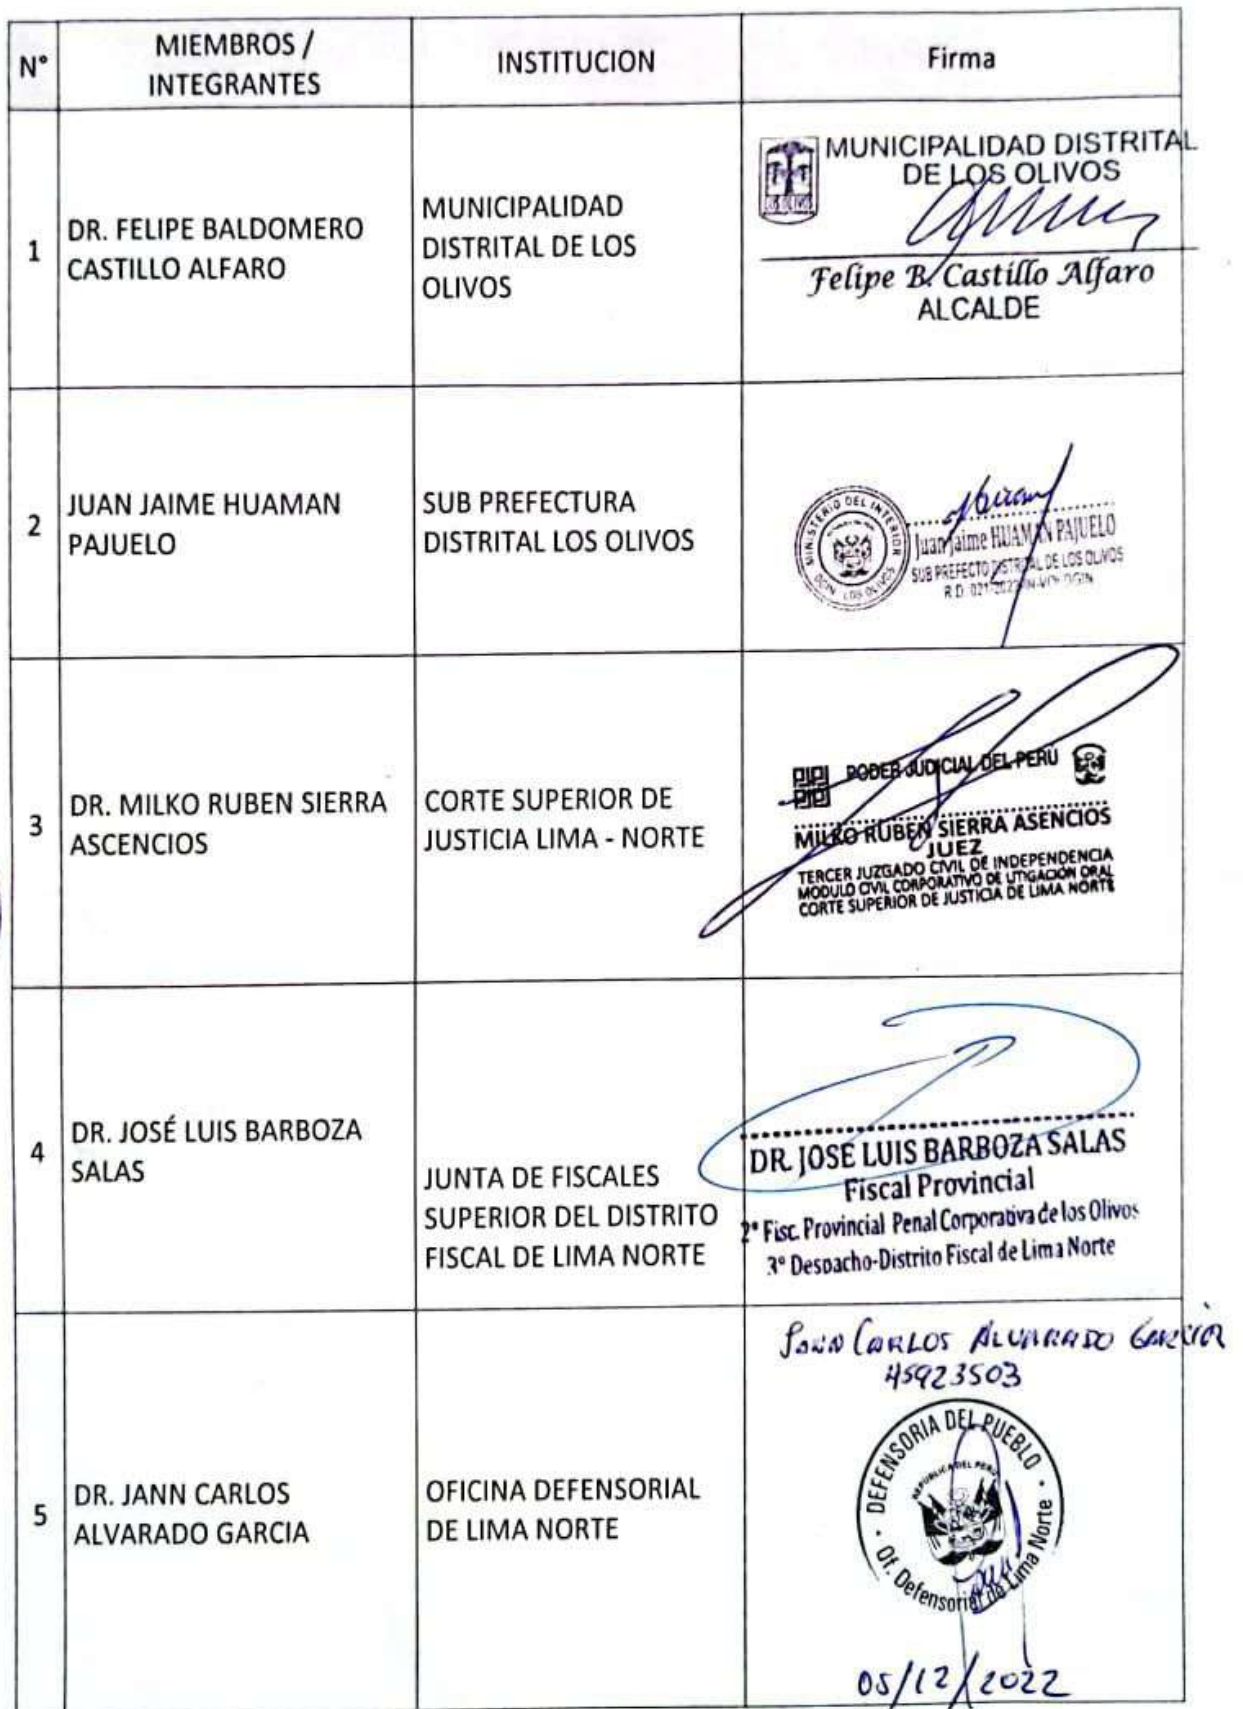 N°
MIEMBROS /
INTEGRANTES
INSTITUCION
Firma
1
DR. FELIPE BALDOMERO
CASTILLO ALFARO
MUNICIPALIDAD
DISTRITAL DE LOS
OLIVOS
MUNICIPALIDAD DISTRITAL
DE LOS OLIVOS
LOS OLIVOS
Felipe B. Castillo Alfaro
ALCALDE
2
JUAN JAIME HUAMAN
PAJUELO
SUB PREFECTURA
DISTRITAL LOS OLIVOS
MINISTERIO DEL INTERIOR
DGIN LOS OLIVOS
Juan Jaime HUAMAN PAJUELO
SUB PREFECTO DISTRITAL DE LOS OLIVOS
3
DR. MILKO RUBEN SIERRA
ASCENCIOS
CORTE SUPERIOR DE
JUSTICIA LIMA - NORTE
PODER JUDICIAL DEL PERÚ
MILKO RUBEN SIERRA ASENCIOS
JUEZ
TERCER JUZGADO CIVIL DE INDEPENDENCIA
MODULO CIVIL CORPORATIVO DE LITIGACIÓN ORAL
CORTE SUPERIOR DE JUSTICIA DE LIMA NORTE
4
DR. JOSÉ LUIS BARBOZA
SALAS
JUNTA DE FISCALES
SUPERIOR DEL DISTRITO
FISCAL DE LIMA NORTE
DR. JOSE LUIS BARBOZA SALAS
Fiscal Provincial
2° Fisc. Provincial Penal Corporativa de los Olivos
3° Despacho-Distrito Fiscal de Lima Norte
5
DR. JANN CARLOS
ALVARADO GARCIA
OFICINA DEFENSORIAL
DE LIMA NORTE
JANN CARLOS ALVARADO GARCIA
45923503
DEFENSORIA DEL PUEBLO
REPÚBLICA DEL PERÚ
Of. Defensorial de Lima Norte
05/12/2022